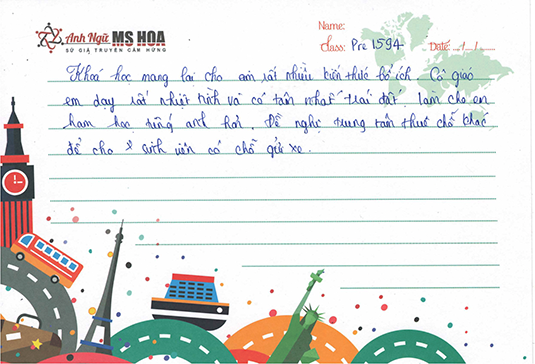 Anh Ngữ MS HOA
SỨ GIẢ TRUYỀN CẢM HỨNG
Name:
Class: Pre 1594 Date: .../.../......
Khoá học mang lại cho em rất nhiều kiến thức bổ ích. Cô giáo
em dạy rất nhiệt tình và có tâm nhất trái đất, làm cho em
ham học tiếng anh hơn. Đề nghị trung tâm thuê chỗ khác
để cho sinh viên có chỗ gửi xe.